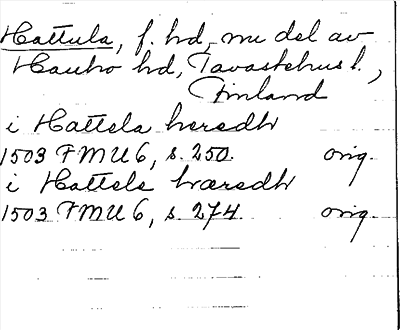 Hattula, f. hd, nu del av
Hauho hd, Tavastehus l.,
Finland
i Hattela heredh
1503 FMU 6, s. 250. orig.
i Hattels hæredh
1503 FMU 6, s. 274. orig.